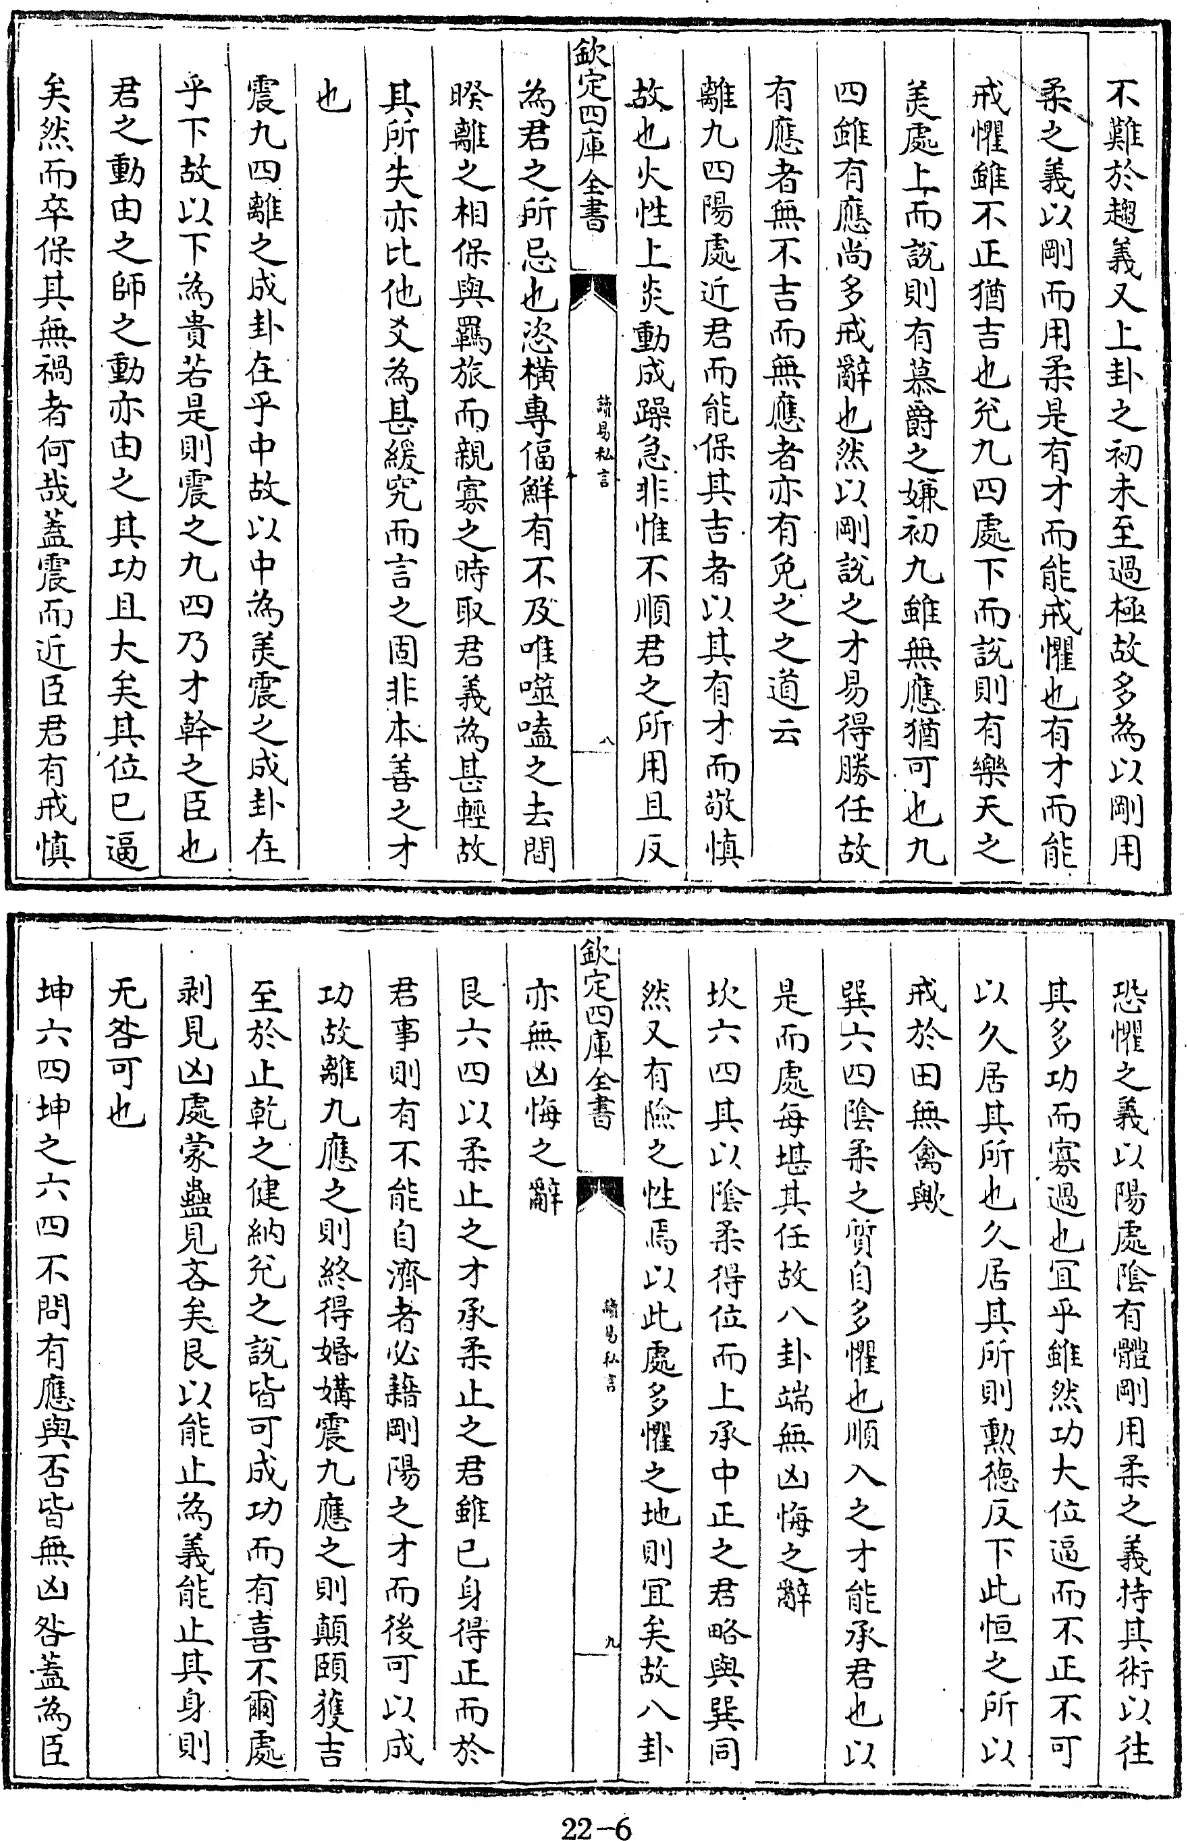 不難於趨義又上卦之初未至過極故多為以剛用
柔之義以剛而用柔是有才而能戒懼也有才而能
戒懼雖不正猶吉也兊九四處下而説則有樂天之
美處上而説則有慕爵之嫌初九雖無應猶可也九
四雖有應尚多戒辭也然以剛説之才易得勝任故
有應者無不吉而無應者亦有免之之道云
離九四陽處近君而能保其吉者以其有才而敬慎
故也火性上炎動成躁急非惟不順君之所用且反
欽定四庫全書
讀易私言
八
為君之所忌也恣横專偪鮮有不及唯噬嗑之去間
暌離之相保與羈旅而親寡之時取君義為甚輕故
其所失亦比他爻為甚緩究而言之固非本善之才
也
震九四離之成卦在乎中故以中為美震之成卦在
乎下故以下為貴若是則震之九四乃才幹之臣也
君之動由之師之動亦由之其功且大矣其位已逼
矣然而卒保其無禍者何哉蓋震而近臣君有戒慎
恐懼之義以陽處陰有體剛用柔之義持其術以往
其多功而寡過也宜乎雖然功大位逼而不正不可
以久居其所也久居其所則勲德反下此恒之所以
戒於田無禽歟
巽六四陰柔之質自多懼也順入之才能承君也以
是而處每堪其任故八卦端無凶悔之辭
坎六四其以陰柔得位而上承中正之君略與巽同
然又有險之性焉以此處多懼之地則宜矣故八卦
欽定四庫全書
讀易私言
九
亦無凶悔之辭
艮六四以柔止之才承柔止之君雖已身得正而於
君事則有不能自濟者必藉剛陽之才而後可以成
功故離九應之則終得婚媾震九應之則顛頤獲吉
至於止乾之健納兊之説皆可成功而有喜不爾處
剥見凶處蒙蠱見吝矣艮以能止為義能止其身則
无咎可也
坤六四坤之六四不問有應與否皆無凶咎蓋為臣
22-6